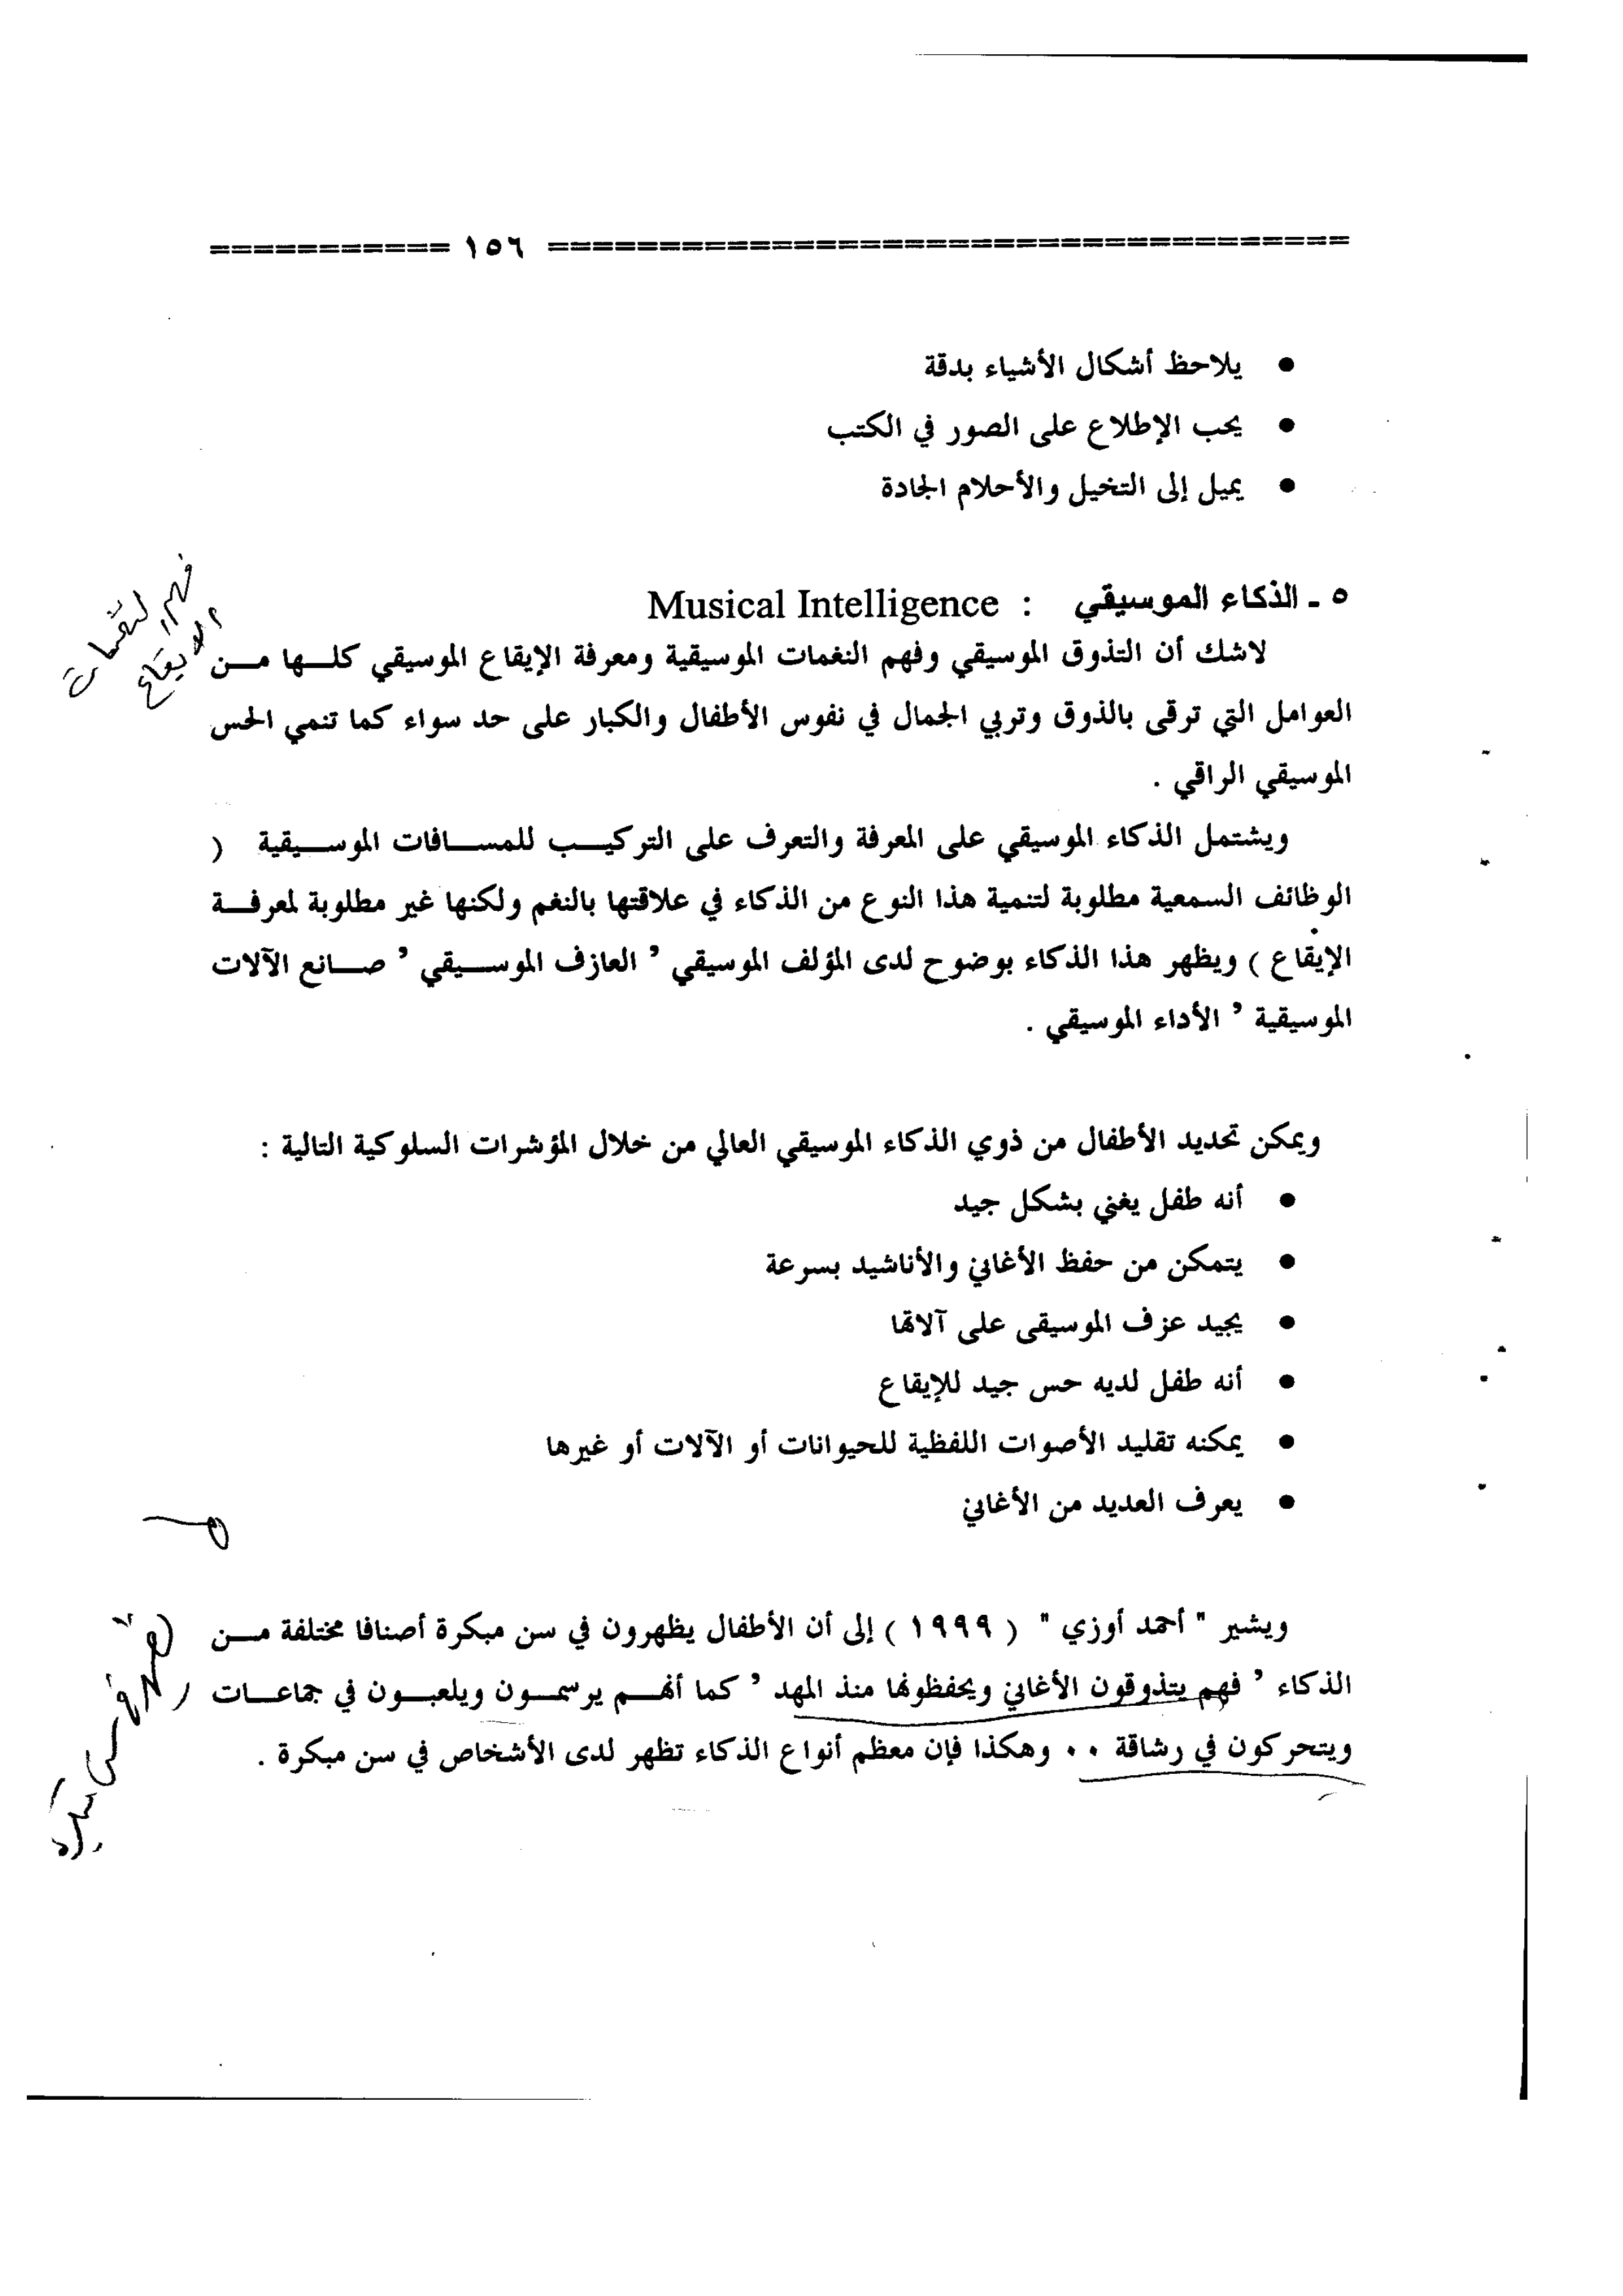 =================================== ١٥٦ ===========
• يلاحظ أشكال الأشياء بدقة
• يحب الإطلاع على الصور في الكتب
• يميل إلى التخيل والأحلام الجادة
٥ ـ الذكاء الموسيقي : Musical Intelligence
لاشك أن التذوق الموسيقي وفهم النغمات الموسيقية ومعرفة الإيقاع الموسيقي كلها من
العوامل التي ترقى بالذوق وتربي الجمال في نفوس الأطفال والكبار على حد سواء كما تنمي الحس
الموسيقي الراقي .
ويشتمل الذكاء الموسيقي على المعرفة والتعرف على التركيب للمسافات الموسيقية (
الوظائف السمعية مطلوبة لتنمية هذا النوع من الذكاء في علاقتها بالنغم ولكنها غير مطلوبة لمعرفة
الإيقاع ) ويظهر هذا الذكاء بوضوح لدى المؤلف الموسيقي ’ العازف الموسيقي ’ صانع الآلات
الموسيقية ’ الأداء الموسيقي .
ويمكن تحديد الأطفال من ذوي الذكاء الموسيقي العالي من خلال المؤشرات السلوكية التالية :
• أنه طفل يغني بشكل جيد
• يتمكن من حفظ الأغاني والأناشيد بسرعة
• يجيد عزف الموسيقى على آلاتها
• أنه طفل لديه حس جيد للإيقاع
• يمكنه تقليد الأصوات اللفظية للحيوانات أو الآلات أو غيرها
• يعرف العديد من الأغاني
ويشير " أحمد أوزي " ( ١٩٩٩ ) إلى أن الأطفال يظهرون في سن مبكرة أصنافا مختلفة من
الذكاء ’ فهم يتذوقون الأغاني ويحفظونها منذ المهد ’ كما أنهم يرسمون ويلعبون في جماعات
ويتحركون في رشاقة .. وهكذا فإن معظم أنواع الذكاء تظهر لدى الأشخاص في سن مبكرة .
فهم النغمات
الايقاع